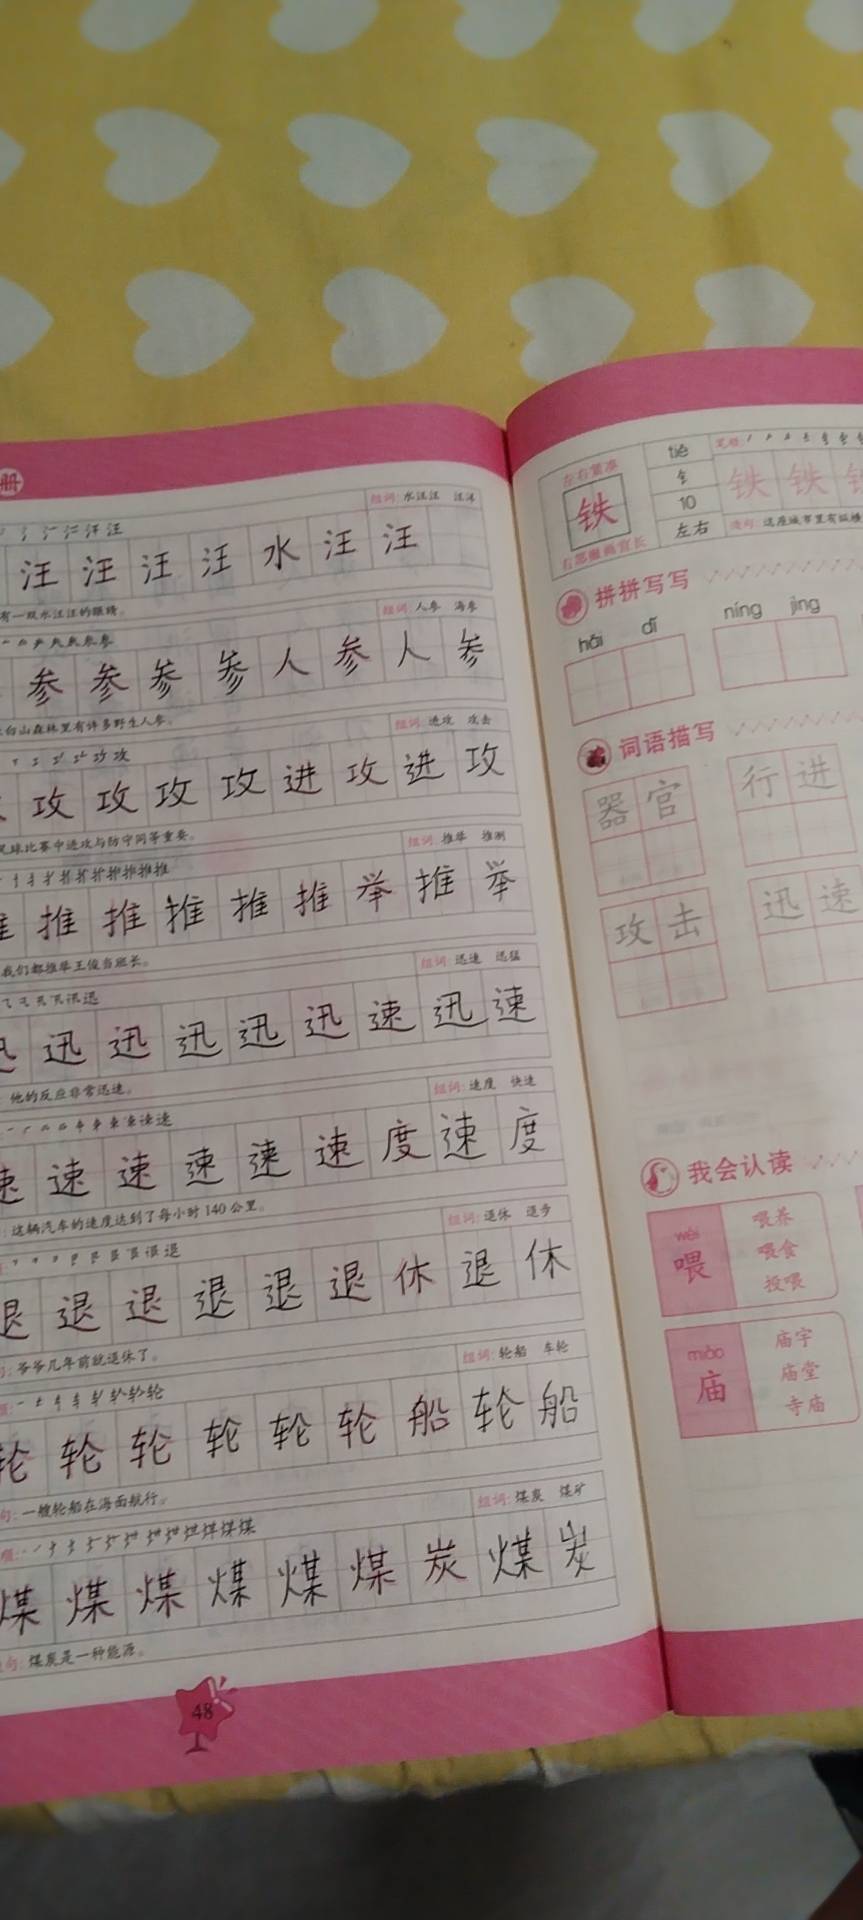 册
组词:水汪汪 汪洋
汪 汪 汪 汪 水 汪 汪
有一双水汪汪的眼睛。
组词:人参 海参
参 参 参 参 人 参 人 参
白山森林里有许多野生人参。
组词:进攻 攻击
攻 攻 攻 攻 进 攻 进 攻
球比赛中进攻与防守同等重要。
组词:推举 推测
推 推 推 推 推 推 举 推 举
我们都推举王俊当班长。
组词:迅速 迅猛
迅 迅 迅 迅 迅 迅 速 迅 速
他的反应非常迅速。
组词:速度 快速
速 速 速 速 速 速 度 速 度
:这辆汽车的速度达到了每小时140公里。
组词:退休 退步
退 退 退 退 退 退 休 退 休
句:爷爷几年前就退休了。
组词:轮船 车轮
轮 轮 轮 轮 轮 轮 船 轮 船
句:一艘轮船在海面航行。
组词:煤炭 煤矿
煤 煤 煤 煤 煤 煤 炭 煤 炭
句:煤炭是一种能源。
48
左右紧凑
铁
右部撇画宜长
tiě
钅
10
左右
笔顺:
铁 铁
造句:这座城市里有
拼拼写写
hǎi dǐ níng jìng
词语描写
器官 行进
攻击 迅速
我会认读
wèi
喂
喂养
喂食
投喂
miào
庙
庙宇
庙堂
寺庙